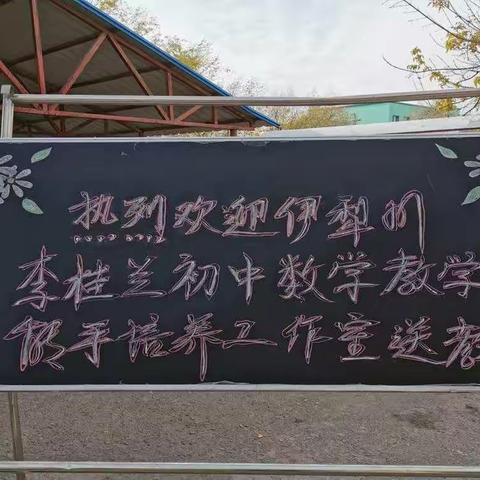 热列欢迎伊犁州
李桂兰初中数学教学
能手培养工作室送教